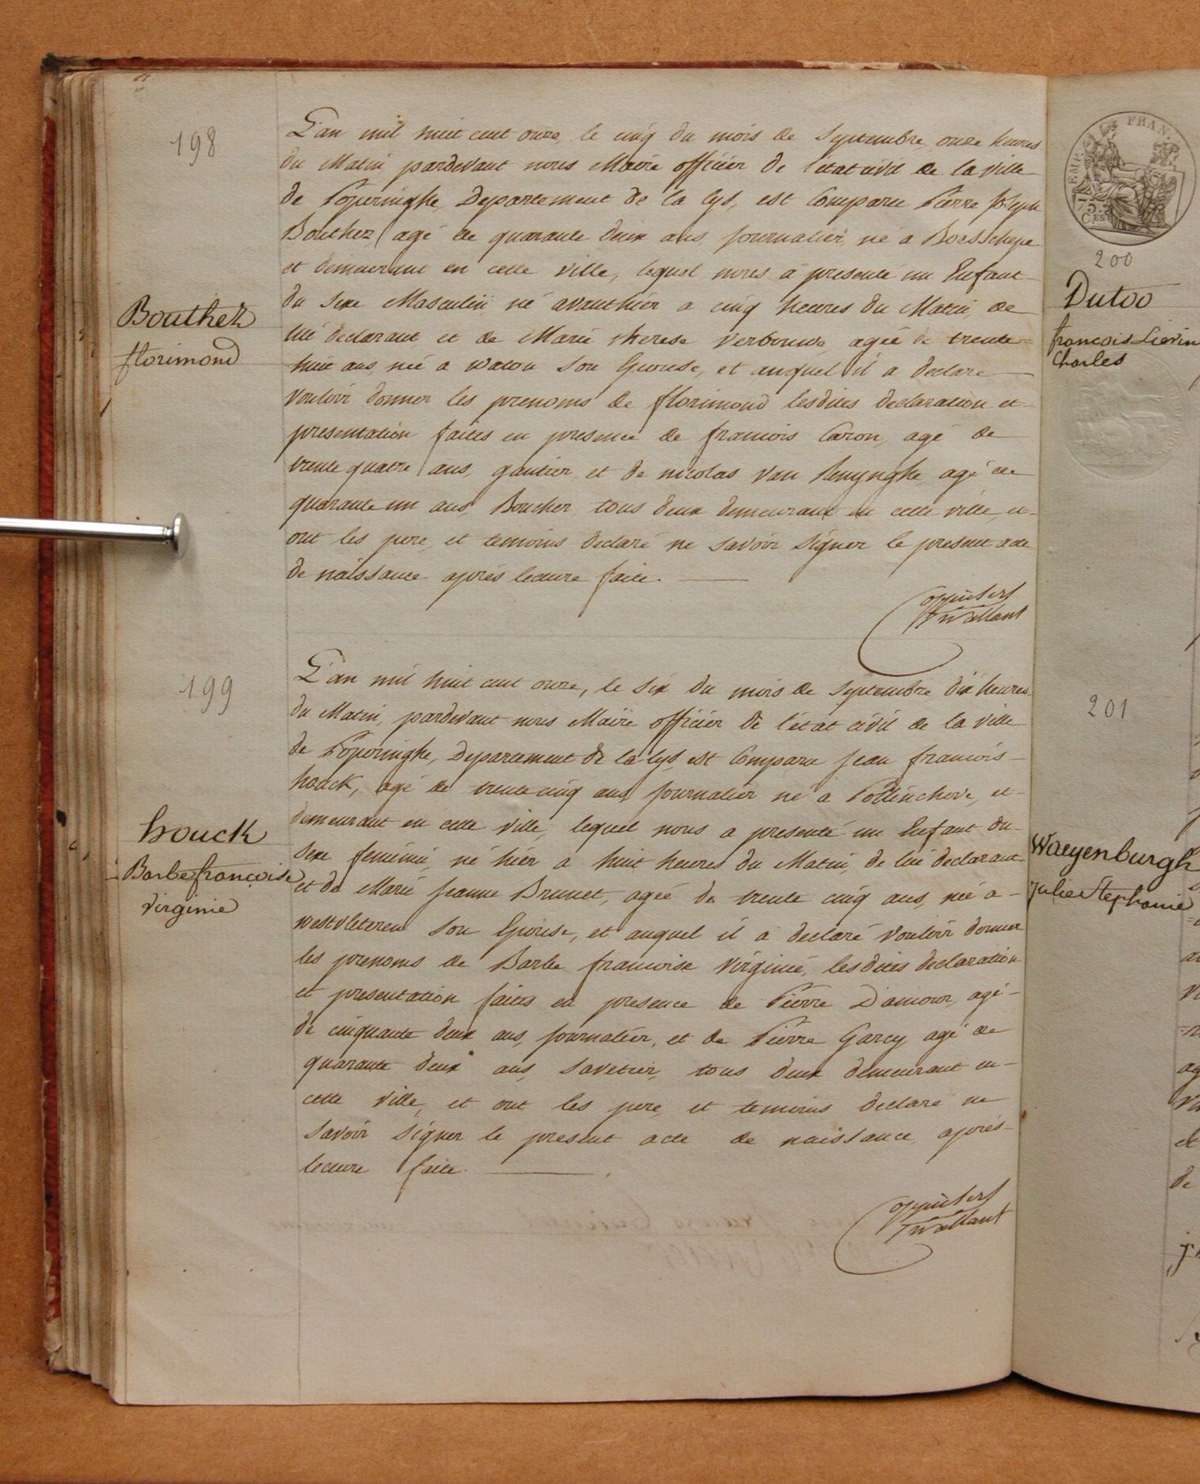 198
L'an mil huit cent onze, le cinq du mois de Septembre onze heures
du Matin pardevant nous Maire officier de l'etat civil de la ville
de Poperinghe, Departement de la Lys, est Comparu Pierre Joseph
Bouthez agé de quarante deux ans journalier, né a Boesschepe
et demeurant en cette ville, lequel nous a presenté un Enfant
du Sexe Masculin né avanthier a cinq heures du Matin, de
lui declarant et de Marie therese agée de trente
huit ans née a watou son Epouse, et auquel il a declaré
vouloir donner les prenoms de florimond lesdites declaration et
presentation faites en presence de francois Caron, agé de
trente quatre ans, gantier, et de nicolas Van agé de
quarante un ans Boucher, tous deux demeurant en cette ville, et
ont les pere et temoins declaré ne savoir signer le present acte
de naissance après lecture faite.
Bouthez
florimond
199
L'an mil huit cent onze, le six du mois de Septembre dix heures
du Matin, pardevant nous Maire officier de l'état civil de la ville
de Poperinghe, departement de la Lys est Comparu jean francois
houck, agé de trente cinq ans journalier né a Pollinchove, et
demeurant en cette ville, lequel nous a presenté un Enfant du
sexe feminin, né hier a huit heures du Matin, de lui declarant
et de Marie Jeanne Brunet, agée de trente cinq ans, née a
westvleteren son Epouse, et auquel il a declaré vouloir donner
les prenoms de Barbe francoise Virginie, lesdites declaration
et presentation faites en presence de Pierre D'amour, agé
de cinquante deux ans, journalier, et de Pierre Garcy agé de
quarante deux ans, savetier, tous deux demeurant en
cette ville, et ont les pere et temoins declaré ne
savoir signer le present acte de naissance après
lecture faite.
houck
Barbe françoise
Virginie
200
Dutoo
françois Lievin
Charles
201
Waeyenburgh
julie Stephanie